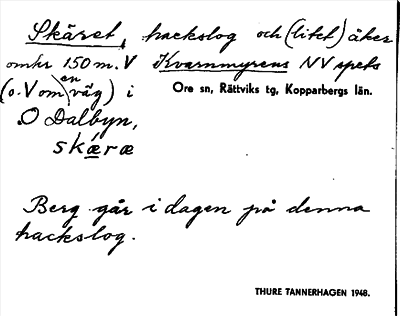 Skäret, hackslog och (litet) åker
omkr 150 m. V Kvarnmyrens NV spets
(o. V om en väg) i Ore sn, Rättviks tg, Kopparbergs län.
O Dalbyn,
skæræ
Berg går i dagen på denna
hackslog.
THURE TANNERHAGEN 1948.